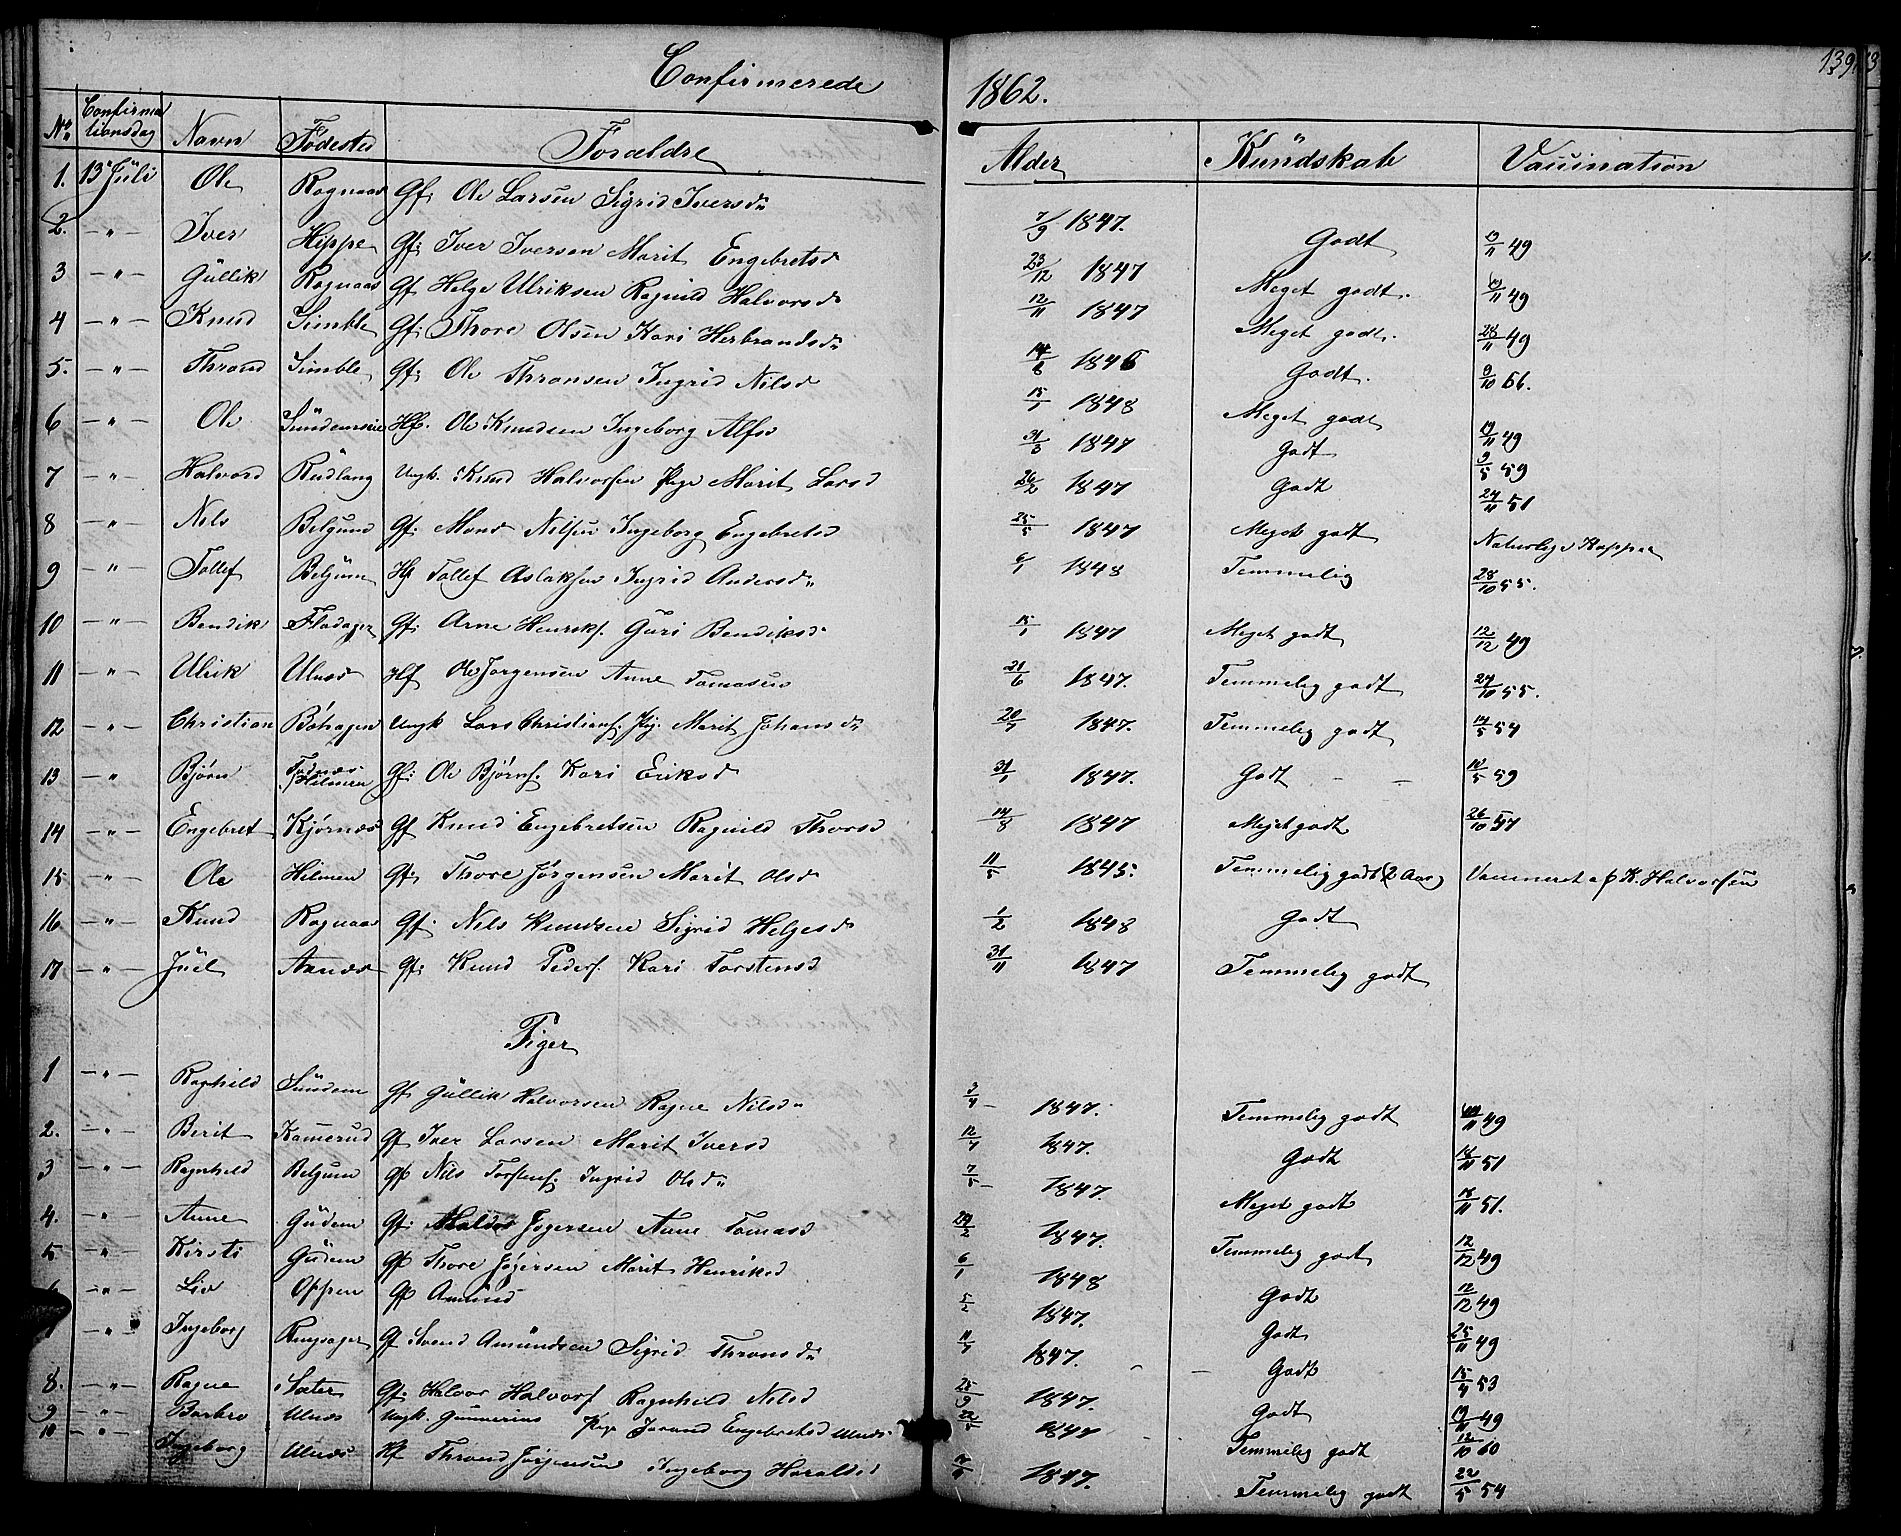 139
Confirmerede 1862.
No Confirmationsdag Navn Födested Forældre Alder Kündskab Vaccination
1. 13 Jüli Ole Rognaas Gf. Ole Larsen Sigrid Iversdr 7/9 1847. Godt 19/11 49
2. -"- Iver Hippe Gf. Iver Iversen Marit Engebretsd 23/12 1847 Meget godt. 19/11 49
3 -"- Güllik Rognaas Gf Helge Ulriksen Ragnild Halvorsd 12/11 1847 Meget godt. 28/11 49
4 -"- Knud Simble Gf. Thore Olsen Kari Herbrandsdr 1846 Godt. 9/10 66.
5. -"- Thrond Simble Gf. Ole Thronsen Ingrid Nilsd 15/1 1848 Meget godt 19/11 49
6 -"- Ole Hf. Ole Knudsen Ingeborg Alfsd 31/3 1847 Godt 9/5 59
7 -"- Halvord Rudlang Ungk. Knud Halvorsen Pige Marit Larsd 26/2 1847 Godt 24/11 51
8 " Nils Belgund Gf. Nilsen Ingeborg Engebretsd 25/5 1847 Meget godt Naturlige Kopper
9 " Tollef Belgum Hf Tollef Aslaksen Ingrid Andersdr 6/1 1848 Temmelig 28/10 55.
10 -"- Bendik Fladager Gf. Arne Henriks. Guri Bendiksd 15/1 1847 Meget godt 12/12 49
11 -"- Ulrik Ulnæs Hf Ole Jorgensen Anne Tomasen 21/6 1847. Temmelig godt 24/10 55.
12 -"- Christian Böhagen Ungk Lars Christians. Pig. Marit Johansdr 20/7 1847. Temmelig godt 14/5 54
13 -"- Bjørn Hilmen Gf. Ole Bjørns. Kari Eriksd 31/1 1847. Godt - - 10/5 59
14 -"- Engebret Kjørnæs Gf Knud Engebretsen Ragnild Thorsd 14/8 1847 Meget godt 26/10 57
15 -"- Ole Hilmen Gf. Thore Jörgensen Marit Olsd 11/5 1845. Temmelig godt Vaccineret af K. Halvorsen
16 -"- Knud Rognaas Gf. Nils Knudsen Sigrid Helgesd 1/2 1848 Godt
17 -"- Jüel Aanæs Gf. Knud Peders. Kari Torstensd 31/11 1847 Temmelig godt
Piger
1 -"- Raghild Sundem Gf. Güllik Halvorsen Ragne Nilsdr 3/4 1847. Temmelig godt 49
2. -"- Berit Kamerud Gf Iver Larsen Marit Iversd 12/7 1847. Godt 18/11 51
3 -"- Ragnhild Belgum Gf Nils Torstens. Ingrid Olsdr 7/1 1847. Meget godt 18/11 51.
4. " Anne Güdem Gf. Jögersen Anne Tomasd 1847. Temmelig godt 12/12 49
5 " Kirsti Güdem Gf Thore Jögersen Marit Henriksd 6/1 1848 Godt 12/12 49
-"- Liv Oppen Gf Amund 5/2 1847. Godt 25/11 49
-"- Ingeborg Ringsager Gf Svend Amündsen Sigrid Thronsdr 1847. Godt 15/4 53
8. -"- Ragne Sæter Gf. Halvor Halvors Ragnhild Nilsd 25/9 1847. Godt 19/11 49
9 -"- Barbro Ulnæs Ungk. Gunnerius Pige Jorand Engebretsd Ulnæs 22/5 1847 Temmelig godt 12/10 60
10 -"- Ingeborg Ulnæs Hf Thrond Jörgensen Ingeborg Haraldsd 1847. Temmelig godt 22/5 54